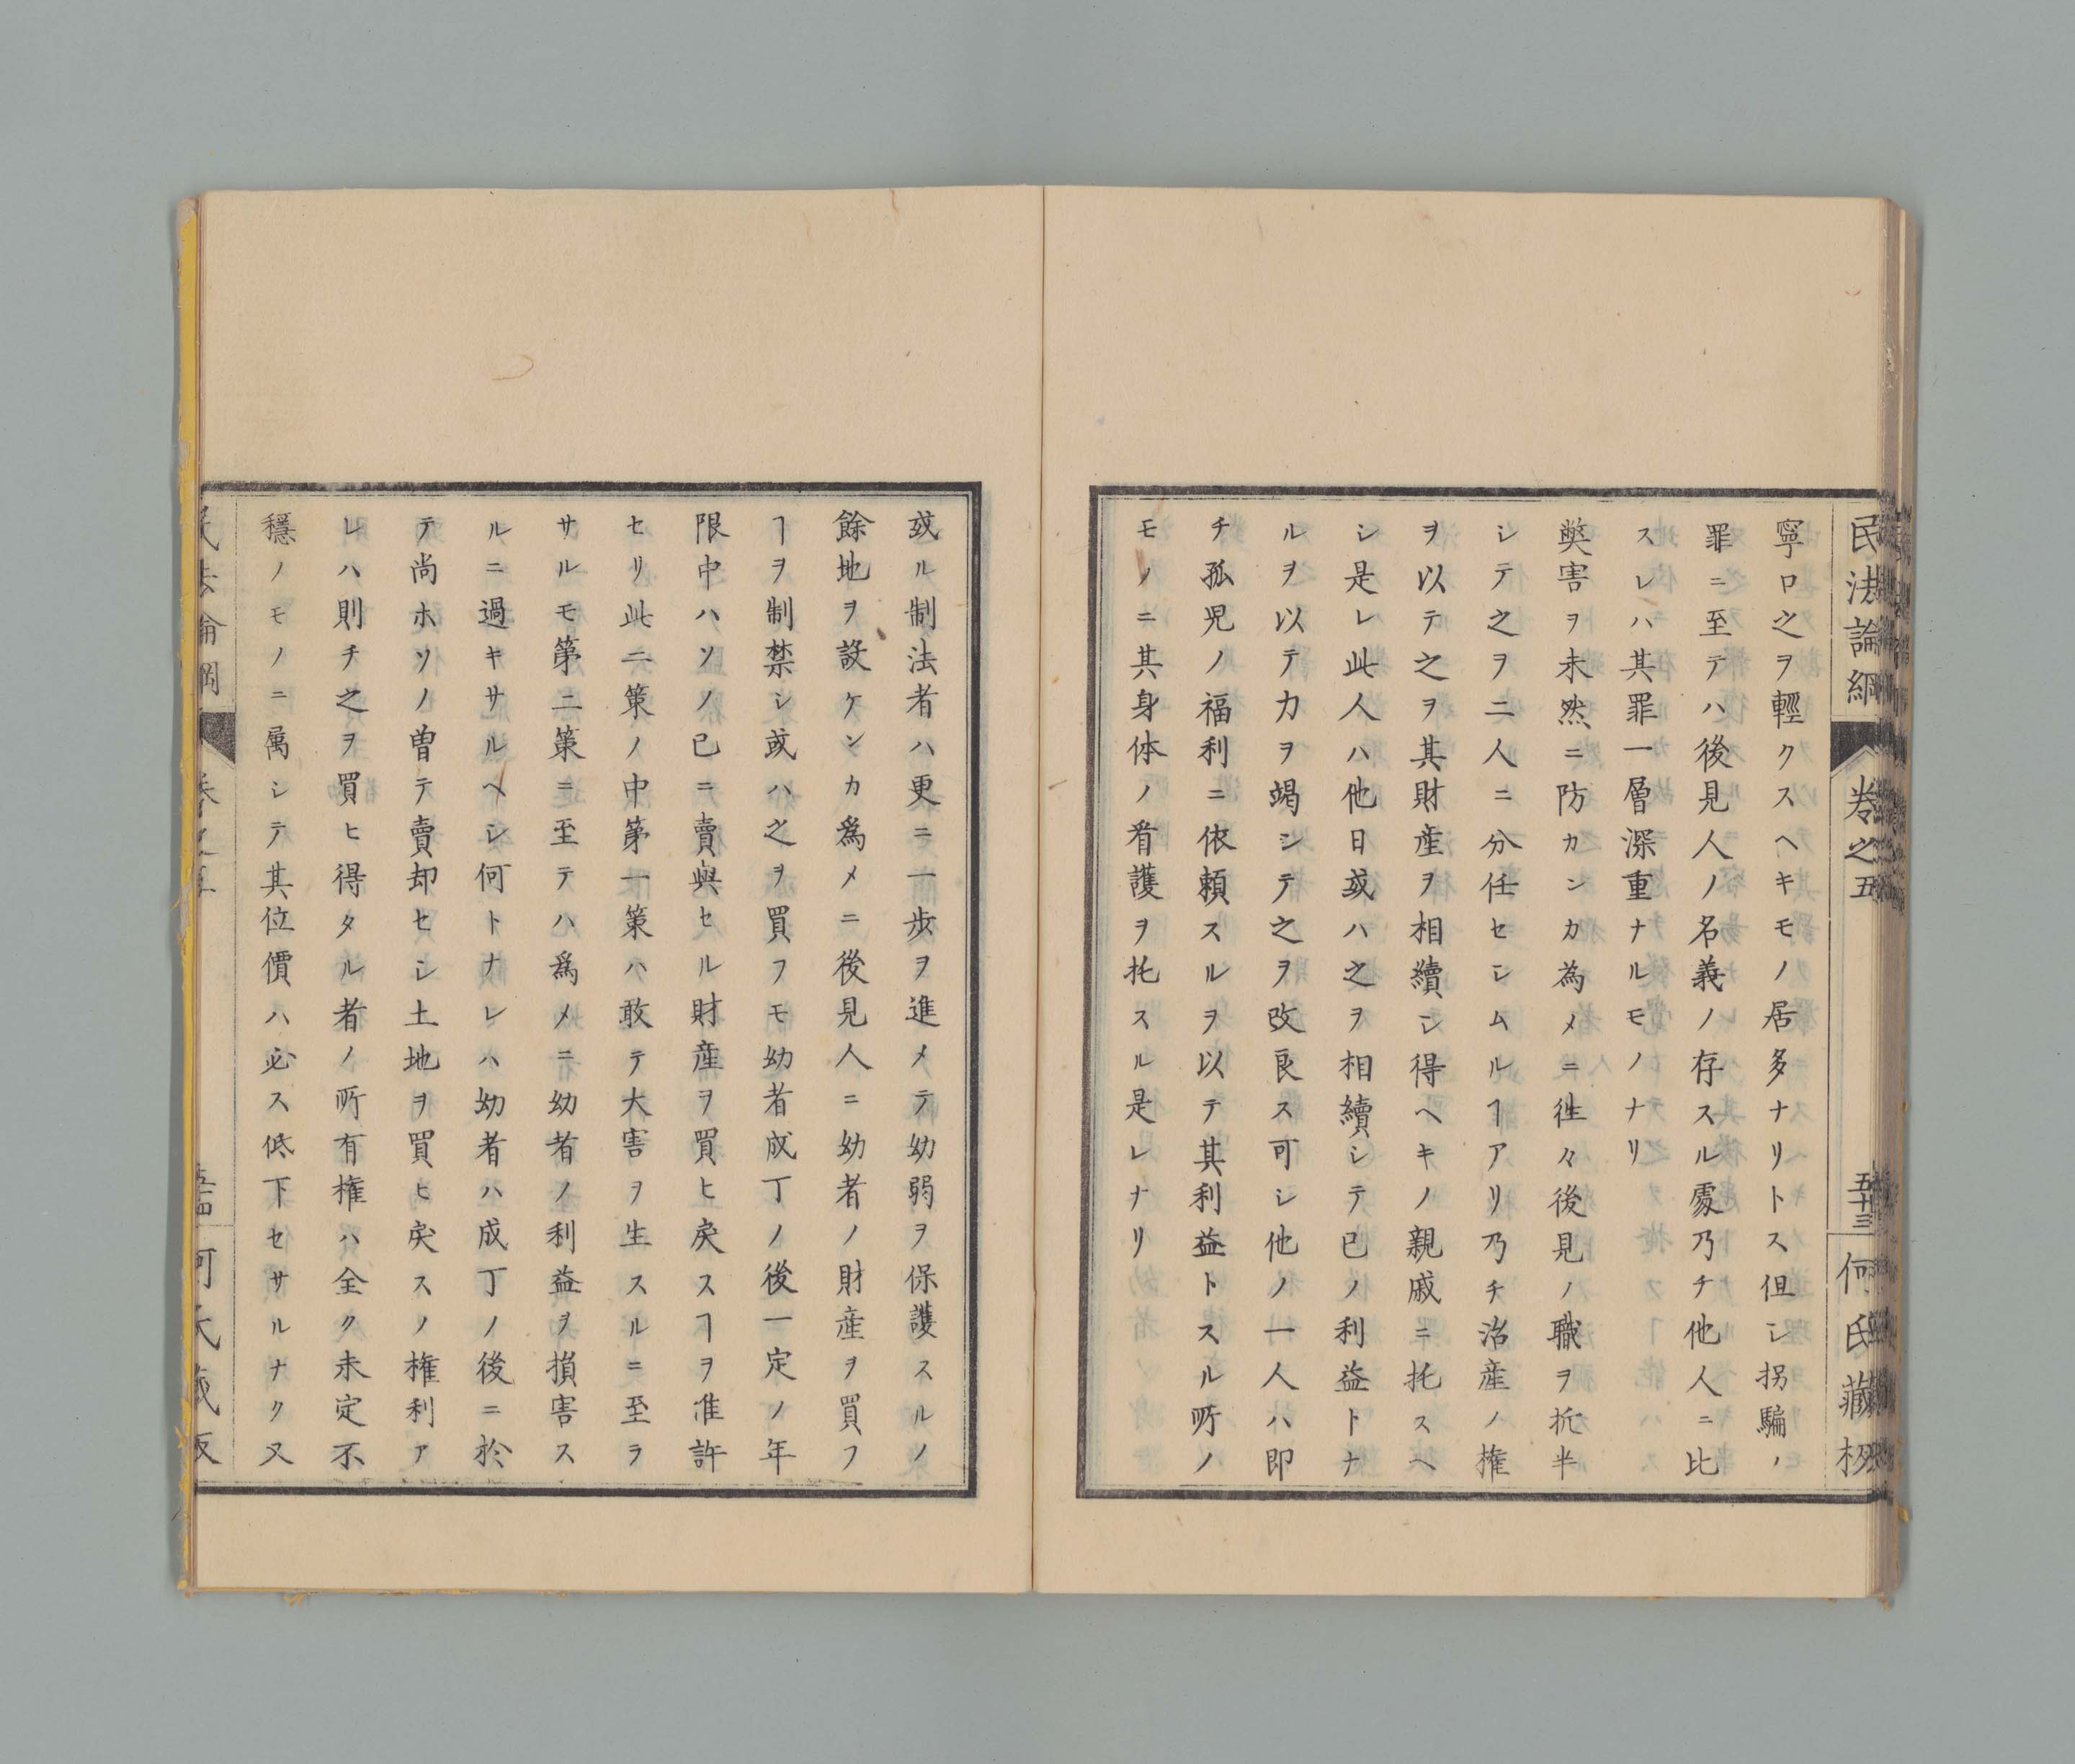 民法論綱 卷之五 五十三 何氏藏板
寧ロ之ヲ輕クスヘキモノ居多ナリトス但シ拐騙ノ
罪ニ至テハ後見人ノ名義ノ存スル處乃チ他人ニ比
スレハ其罪一層深重ナルモノナリ
獘害ヲ未然ニ防カンカ為メニ徃々後見ノ職ヲ折半
シテ之ヲ二人ニ分任セシムルヿアリ乃チ治産ノ権
ヲ以テ之ヲ其財産ヲ相續シ得ヘキノ親戚ニ托スヘ
シ是レ此人ハ他日或ハ之ヲ相續シテ已ノ利益トナ
ルヲ以テ力ヲ竭シテ之ヲ改良ス可シ他ノ一人ハ即
チ孤児ノ福利ニ依頼スルヲ以テ其利益トスル所ノ
モノニ其身体ノ看護ヲ托スル是レナリ
或ル制法者ハ更ニ一歩ヲ進メテ幼弱ヲ保護スルノ
餘地ヲ設ケンカ爲メニ後見人ニ幼者ノ財産ヲ買フ
ヿヲ制禁シ或ハ之ヲ買フモ幼者成丁ノ後一定ノ年
限中ハソノ已ニ賣與セル財産ヲ買ヒ戻スヿヲ准許
セリ此二策ノ中第一策ハ敢テ大害ヲ生スルニ至ラ
サルモ第二策ニ至テハ爲メニ幼者ノ利益ヲ損害ス
ルニ過キサルヘシ何トナレハ幼者ハ成丁ノ後ニ於
テ尚ホソノ曽テ賣却セシ土地ヲ買ヒ戻スノ権利ア
レハ則チ之ヲ買ヒ得タル者ノ所有権ハ全ク未定不
穩ノモノニ属シテ其位價ハ必ス低下セサルナク又
民法論綱 卷之五 五十四 何氏藏板